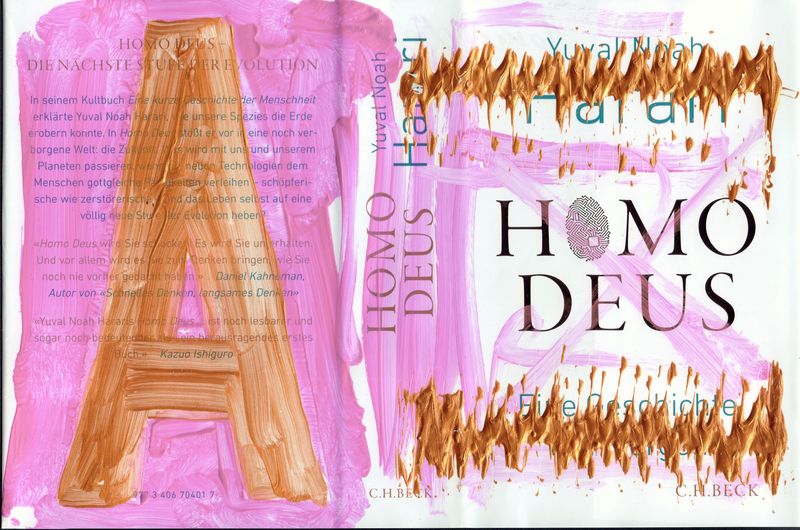 A
HOMO DEUS –
DIE NÄCHSTE STUFE DER EVOLUTION
In seinem Kultbuch Eine kurze Geschichte der Menschheit
erklärte Yuval Noah Harari, wie unsere Spezies die Erde
erobern konnte. In Homo Deus stößt er vor in eine noch ver-
borgene Welt: die Zukunft. Was wird mit uns und unserem
Planeten passieren, wenn die neuen Technologien dem
Menschen gottgleiche Fähigkeiten verleihen – schöpferi-
sche wie zerstörerische – und das Leben selbst auf eine
völlig neue Stufe der Evolution heben?
«Homo Deus wird Sie schocken. Es wird Sie unterhalten.
Und vor allem wird es Sie zum Denken bringen, wie Sie
noch nie vorher gedacht haben.» Daniel Kahneman,
Autor von «Schnelles Denken, langsames Denken»
«Yuval Noah Hararis Homo Deus ist noch lesbarer und
sogar noch bedeutender als sein herausragendes erstes
Buch.» Kazuo Ishiguro
978 3 406 70401 7
Yuval Noah
Harari
HOMO
DEUS
C.H.BECK
Yuval Noah
Harari
HOMO
DEUS
Eine Geschichte
C.H.BECK